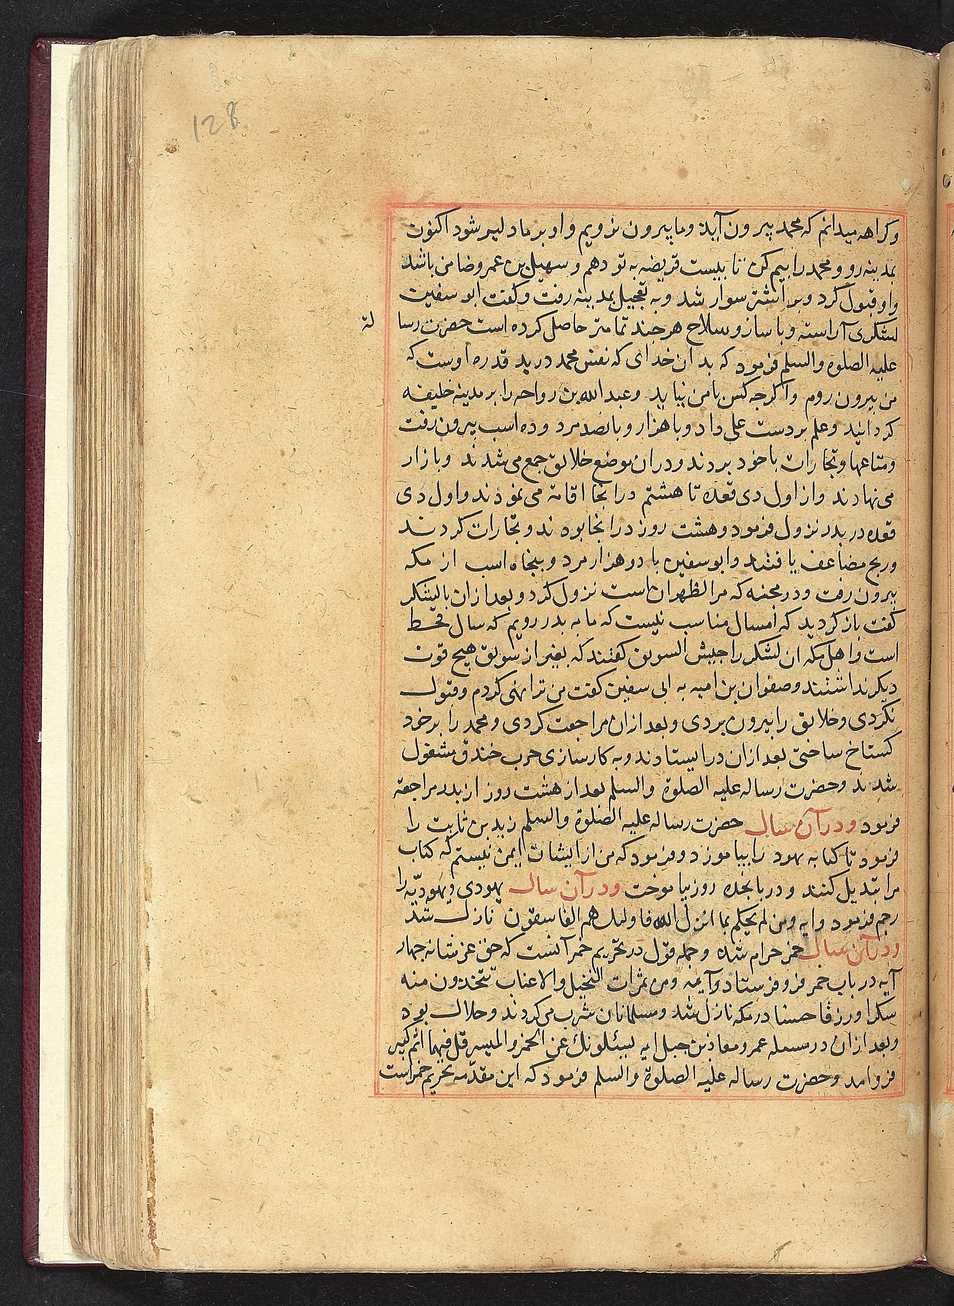 128
وکراهه میدانم که محمد بیرون آید و ما بیرون نرویم و او بر ما دلیر شود اکنون
بمدینه رو و محمد را بیم کن تا بیست قریضه به تو دهم و سهیل بن عمرو ضامن باشد
و او قبول کرد و بر اشتر سوار شد و به تعجیل بمدینه رفت و گفت ابو سفین
لشکری آراسته و با ساز و سلاح هرچند تمامتر حاصل کرده است حضرت رسا
لة
علیه الصلوة والسلم فرمود که بدان خدای که نفس محمد در ید قدره اوست که
من بیرون روم و اگرچه کس با من نیاید و عبد الله بن رواحه را بر مدینه خلیفه
کردانید و علم بر دست علی داد و با هزار و پانصد مرد و ده اسب بیرون رفت
و متاعها و تجارات با خود بردند و دران موضع خلائق جمع می شدند و بازار
می نهادند و از اول ذی قعده تا هشتم در انجا اقامة می نمودند و اول ذی
قعده در بدر نزول فرمود و هشت روز در انجا بودند و تجارات کردند
و ربح مضاعف یافتند و ابو سفین با دو هزار مرد و پنجاه اسب از مکه
بیرون رفت و در مجنه که مر الظهران است نزول کرد و بعد ازان با لشکر
گفت باز کردید که امسال مناسب نیست که ما به بدر رویم که سال قحط
است و اهل مکه ان لشکر را جیش السویق گفتند که بغیر از سویق هیچ قوت
دیگر نداشتند و صفوان بن امیه به ابی سفین گفت من ترا نهی کردم و قبول
نکردی و خلایق را بیرون بردی و بعد ازان مراجعت کردی و محمد را بر خود
کستاخ ساختی بعد ازان در ایستادند و به کارسازی حرب خندق مشغول
شدند و حضرت رساله علیه الصلوة والسلم بعد از هشت روز از بدر مراجعة
فرمود و در آن سال حضرت رساله علیه الصلوة والسلم زید بن ثابت را
فرمود تا کتابه یهود را بیاموزد و فرمود که من از ایشان ایمن نیستم که کتاب
مرا تبدیل کنند و در پانجده روز بیاموخت و در آن سال یهودی و یهودیه را
رجم فرمود و ایه ومن لم یحکم بما انزل الله فاولئک هم الفاسقون نازل شد
و در آن سال خمر حرام شد و جمله قول در تحریم خمر آنست که حق عز شانه چهار
آیه در باب خمر فرو فرستاد و آیه ومن ثمرات النخیل والاعناب تتخذون منه
سکرا ورزقا حسنا در مکه نازل شد و مسلمانان شرب می کردند و حلال بود
و بعد ازان در مسئله عمر و معاذ بن جبل ایه یسئلونک عن الخمر والمیسر قل فیهما اثم کبیر
فرو امد و حضرت رساله علیه الصلوة والسلم فرمود که این مقدمه تحریم خمر است